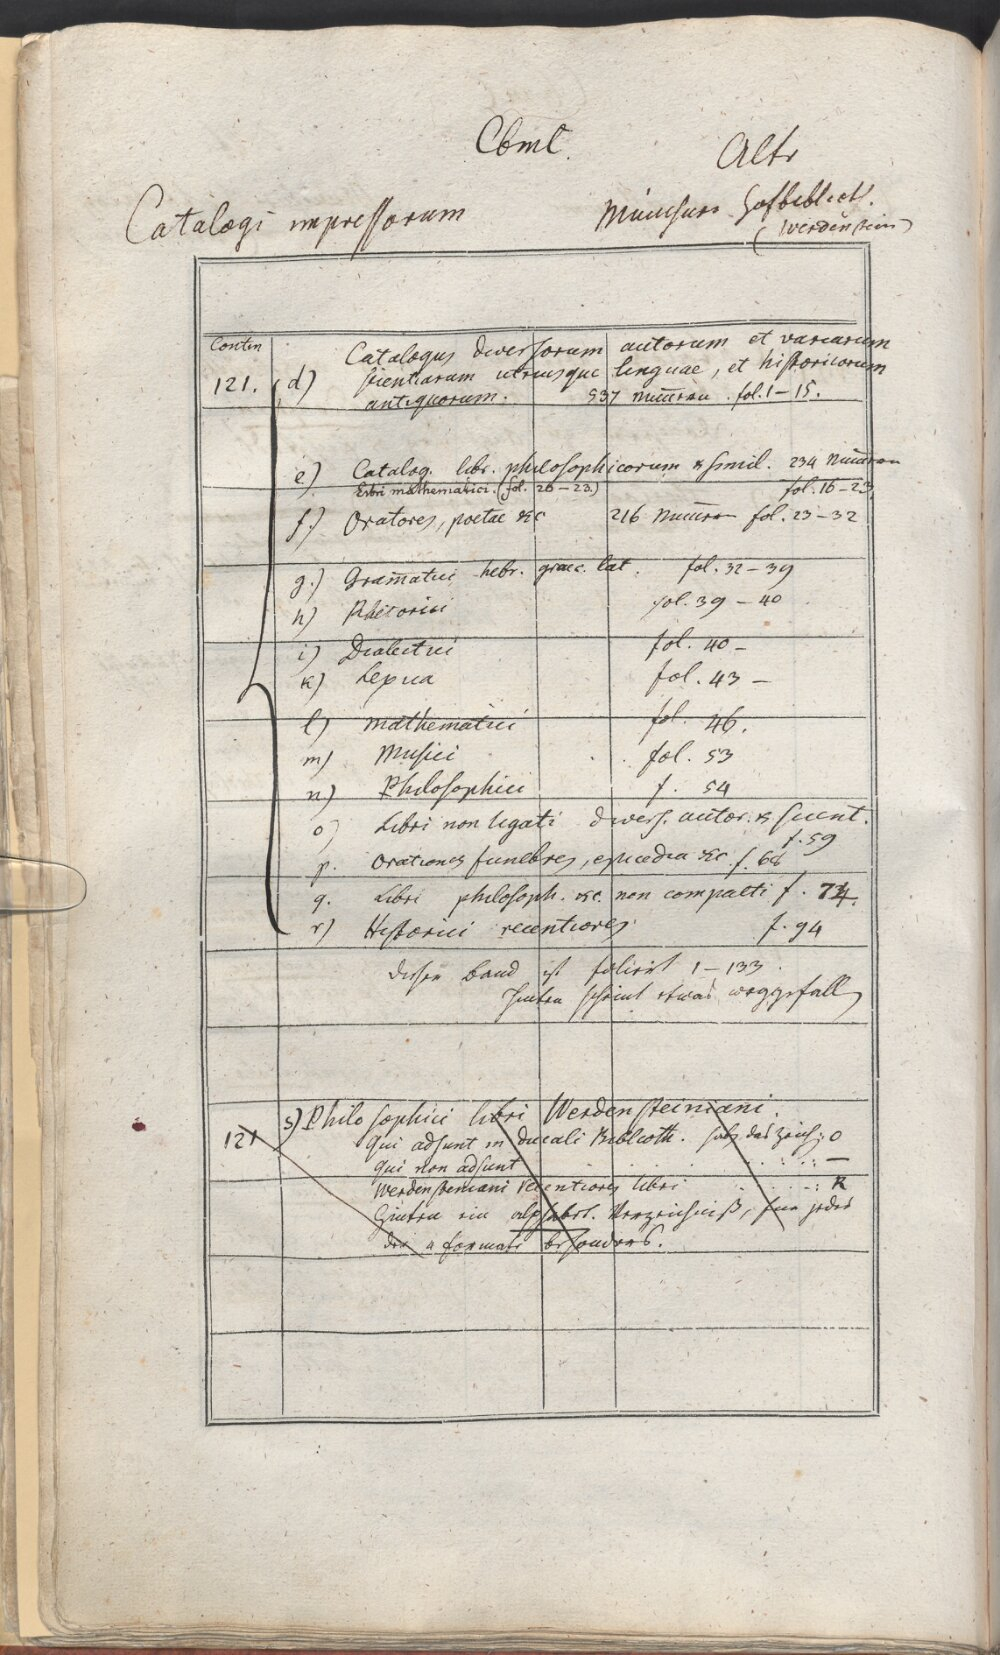 Cbmt. Alte
Catalogi impressorum Münchner Hofbiblioth.
(Werdenstein)
Contin
121. d) Catalogus diversorum autorum et variarum
scientiarum utriusque linguae, et historicorum
antiquorum. 537 Num̅ern. fol. 1–15.
e) Catalog. libr. philosophicorum & simil. 234 Num̅ern
Libri mathematici. (fol. 20–23) fol. 16–23
f.) Oratores, poetae &c 216 Num̅ern fol. 23–32
g.) Gram̅atici hebr. graec. lat. fol. 32–39
h) Rhetorici fol. 39–40
i) Dialectici fol. 40–
k) Lexica fol. 43–
l) Mathematici fol. 46.
m) Musici fol. 53
n) Philosophici f. 54
o) Libri non ligati divers. autor. & scient.
f. 59
p. Orationes funebres, epicedia &c. f. 68
q. Libri philosoph. &c. non compacti f. 74.
r) Historici recentiores f. 94
Dieser Band ist foliirt 1–133.
Hinten scheint etwas weggefallen
121 s) Philosophici libri Werdensteiniani.
Qui adsunt in ducali Biblioth. habe das Zeich: o
Qui non adsunt . . . . . : —
Werdensteniani recentiores libri . . . : R
Hinten ein alphabet. Verzeichniß, für jedes
der 4 formate besonders.